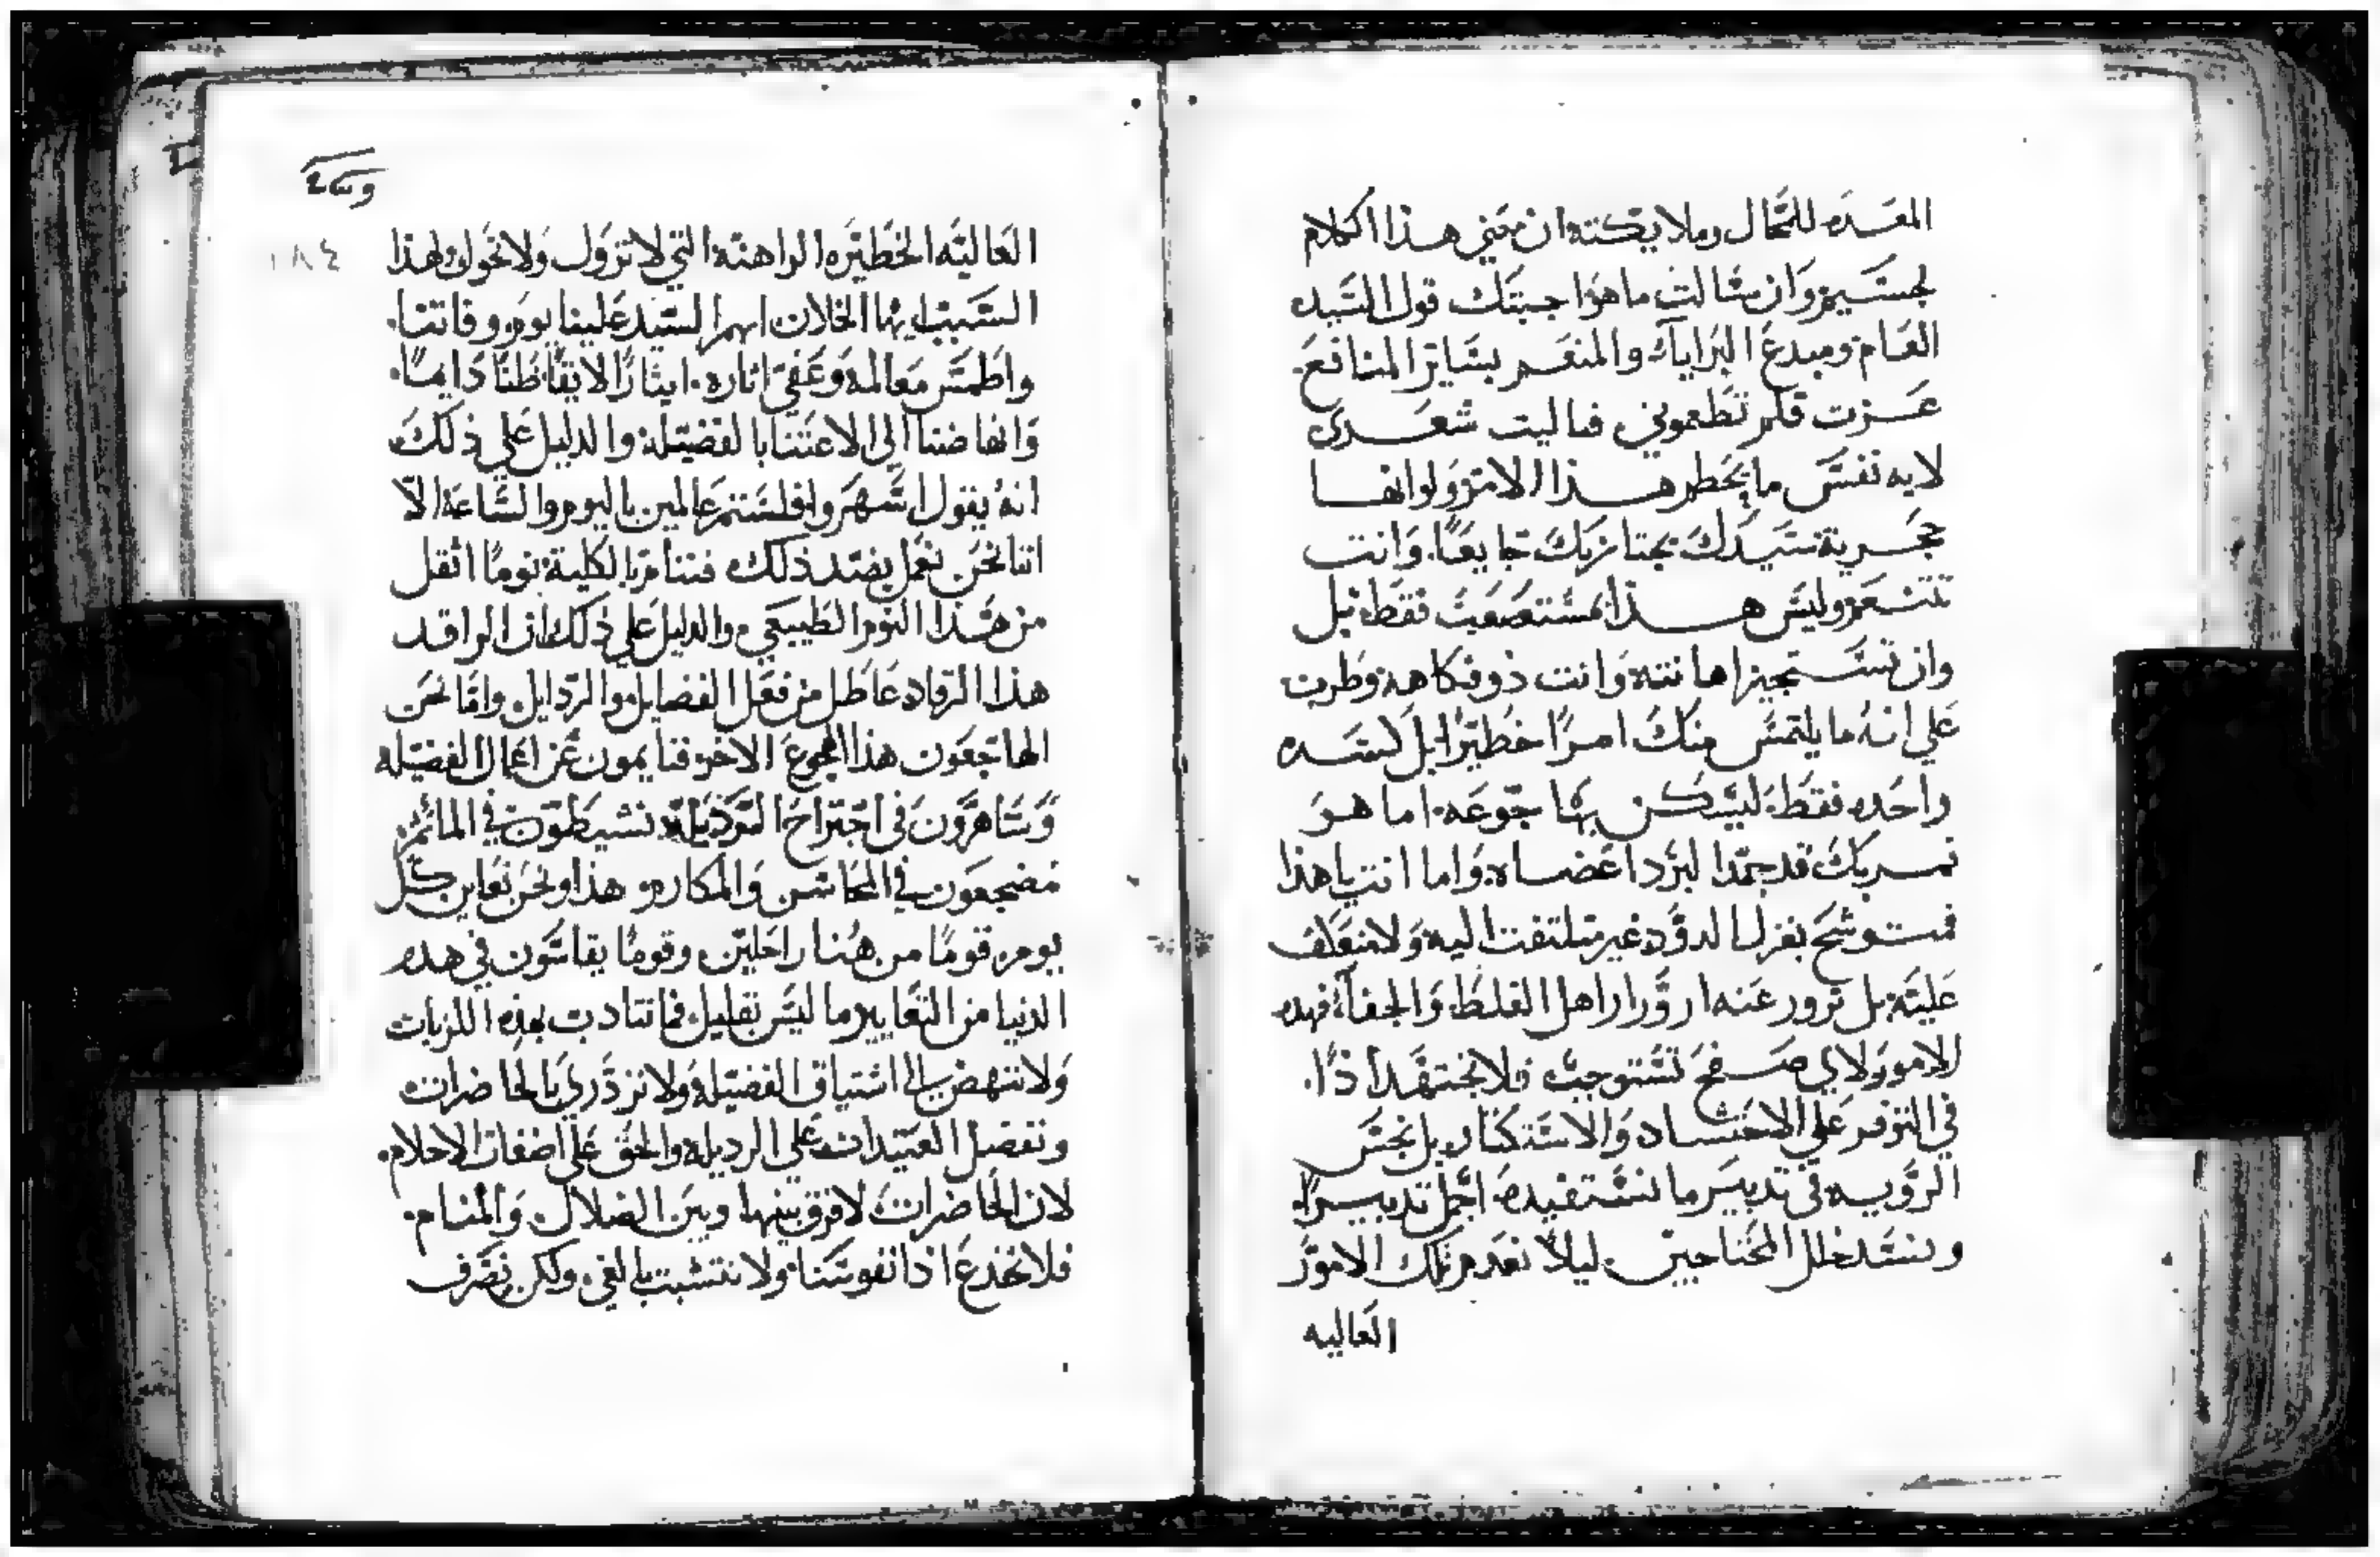 المعده للشمال وملايكته ان معني هذا الكلام
لجسيم وان سالت ما هو اجبتك قول السيد
العام ومبدع البرايا والمنعم بساير المنافع
عزت فلم تطعموني فما ليت شعري
لايه نفس ما يخطر هذا الامر ولو انها
حجرية سيدك يجتاز بك جايعًا وانت
تتنعم وليس هذا مستصعب فقط بل
وان تستجيز اهانته وانت ذو فكاهه وطرب
علي انه ما يلتمس منك امرًا خطيرًا بل كسره
واحده فقط ليسكن بها جوعه اما هو
نسربك قد جمد البرد اعضاه واما انت يا هذا
فمتوشح بغزل الدود غير ملتفت اليه ولا منعطف
عليه بل تزور عنه ازورار اهل الغلط والجفا فهده
الامور لاي صفح تستوجب فلا نجتهد اذًا
في التوفر علي الاحتساد والاستكثار بل نحسن
الرويه في تدبير ما نستفيده اجمل تدبيرًا
ونسد خلل المحتاجين ليلا نعدم تلك الامور
العاليه
وسع
١٨٤
العاليه الخطيره الراهنه التي لا تزول ولا تحول لهذا
السبب يها الخلان ابهم السيد علينا يوم وفاتنا
واطمس معالمه وعفي اثاره ايثارًا لايقاظنا دايمًا
وانهاضنا الي الاعتنا بالفضيله والدليل علي ذلك
انه يقول اسهروا فلستم عالمين باليوم والساعة الا
اننا نحن نعمل بضد ذلك فننام بالكلية نومًا اثقل
من هذا النوم الطبيعي والدليل علي ذلك ان الراقد
هذا الرقاد عاطل من فعل الفضايل والردايل واما نحن
الهاجعون هذا الهجوع الاخر فنايمون عن اعمال الفضيله
وساهرون في اجتراح الرذيلة نشيطون في الماثم
مضجعون في المحاسن والمكارم هذا ونحن نعاين كل
يوم قومًا من هنا راحلين وقومًا يقاسون في هده
الدنيا من التغايير ما ليس بقليل فما نتادب بهذه اللزبات
ولا ننهض الي اشتياق الفضيله ولا نزدري بالحاضرات
ونفضل العتيدات علي الرديله والحق علي اضغاث الاحلام
لان الحاضرات لا فرق بينها وبين الضلال والمنام
فلا نخدع اذا نفوسنا ولا نتشبث بالغي ولكن نصرف